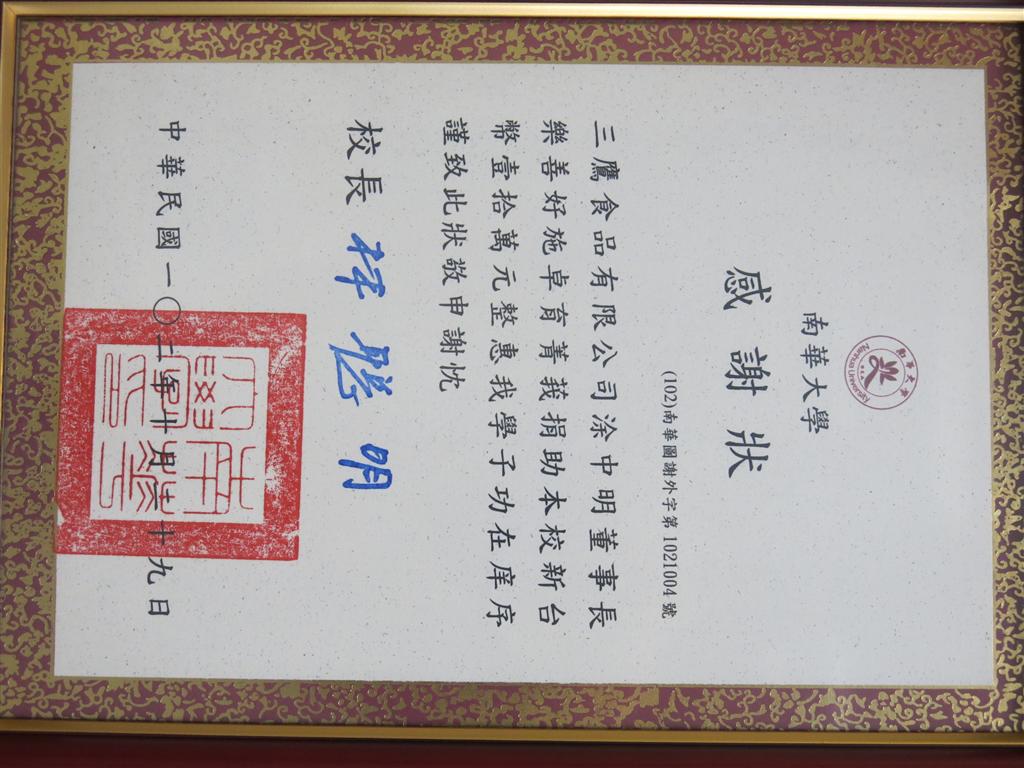 南華大學
Nanhua University
南華大學
感謝狀
(102)南華圖謝外字第1021004號
三鷹食品有限公司涂中明董事長
樂善好施卓育菁莪捐助本校新台
幣壹拾萬元整惠我學子功在庠序
謹致此狀敬申謝忱
校長 林聰明
中華民國一〇二年十月二十九日